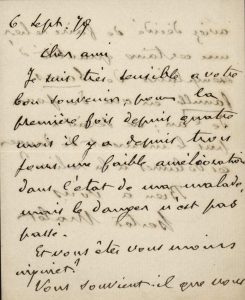 6 Sept. 79
cher ami
Je suis très sensible a votre
bon souvenir, pour la
première fois depuis quatre
mois il y a depuis trois
jours une faible amélioration
dans l'état de ma malade,
mais le danger n'est pas
passé.
Et vous êtes vous moins
inquiet?
Vous souvient il que vous